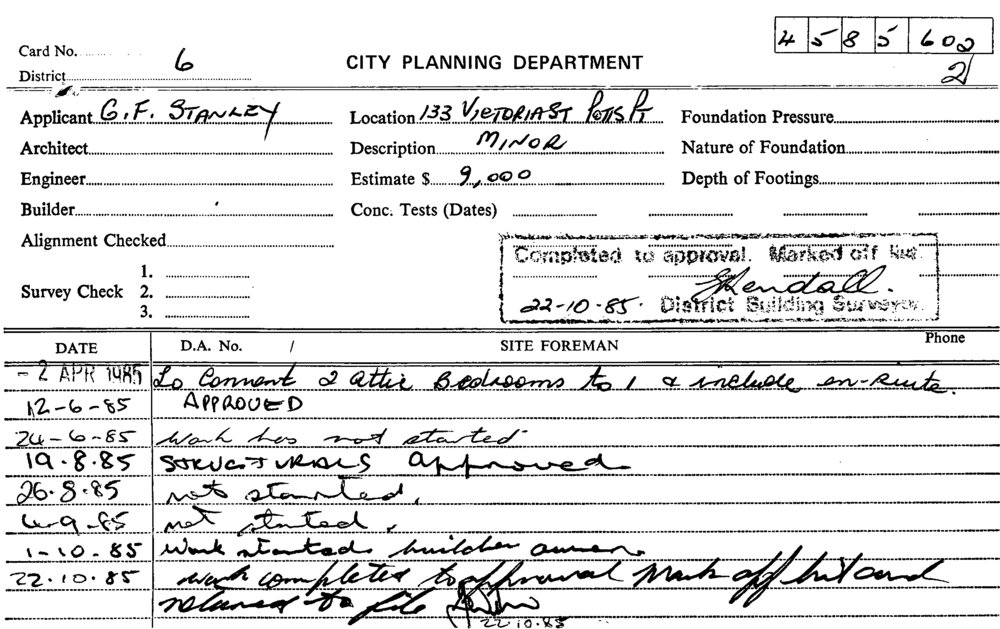 4 5 8 5 602
2
Card No.
District 6
CITY PLANNING DEPARTMENT
Applicant G.F. STANLEY Location 133 VICTORIA ST POTTS PT Foundation Pressure
Architect Description MINOR Nature of Foundation
Engineer Estimate $ 9,000 Depth of Footings
Builder Conc. Tests (Dates)
Alignment Checked
Completed to approval. Marked off list.
Survey Check 1. 2. 3.
Kendall.
22-10-85. District Building Surveyor.
DATE D.A. No. / SITE FOREMAN Phone
- 2 APR 1985 To Convert 2 attic Bedrooms to 1 & include en-suite.
12-6-85 APPROVED
24-6-85 Work has not started
19.8.85 STRUCTURALS approved
26.8.85 not started.
4-9-85 not started.
1-10.85 Work started. builder owner.
22.10.85 work completed to approval Mark off list and
returned to file
22.10.85